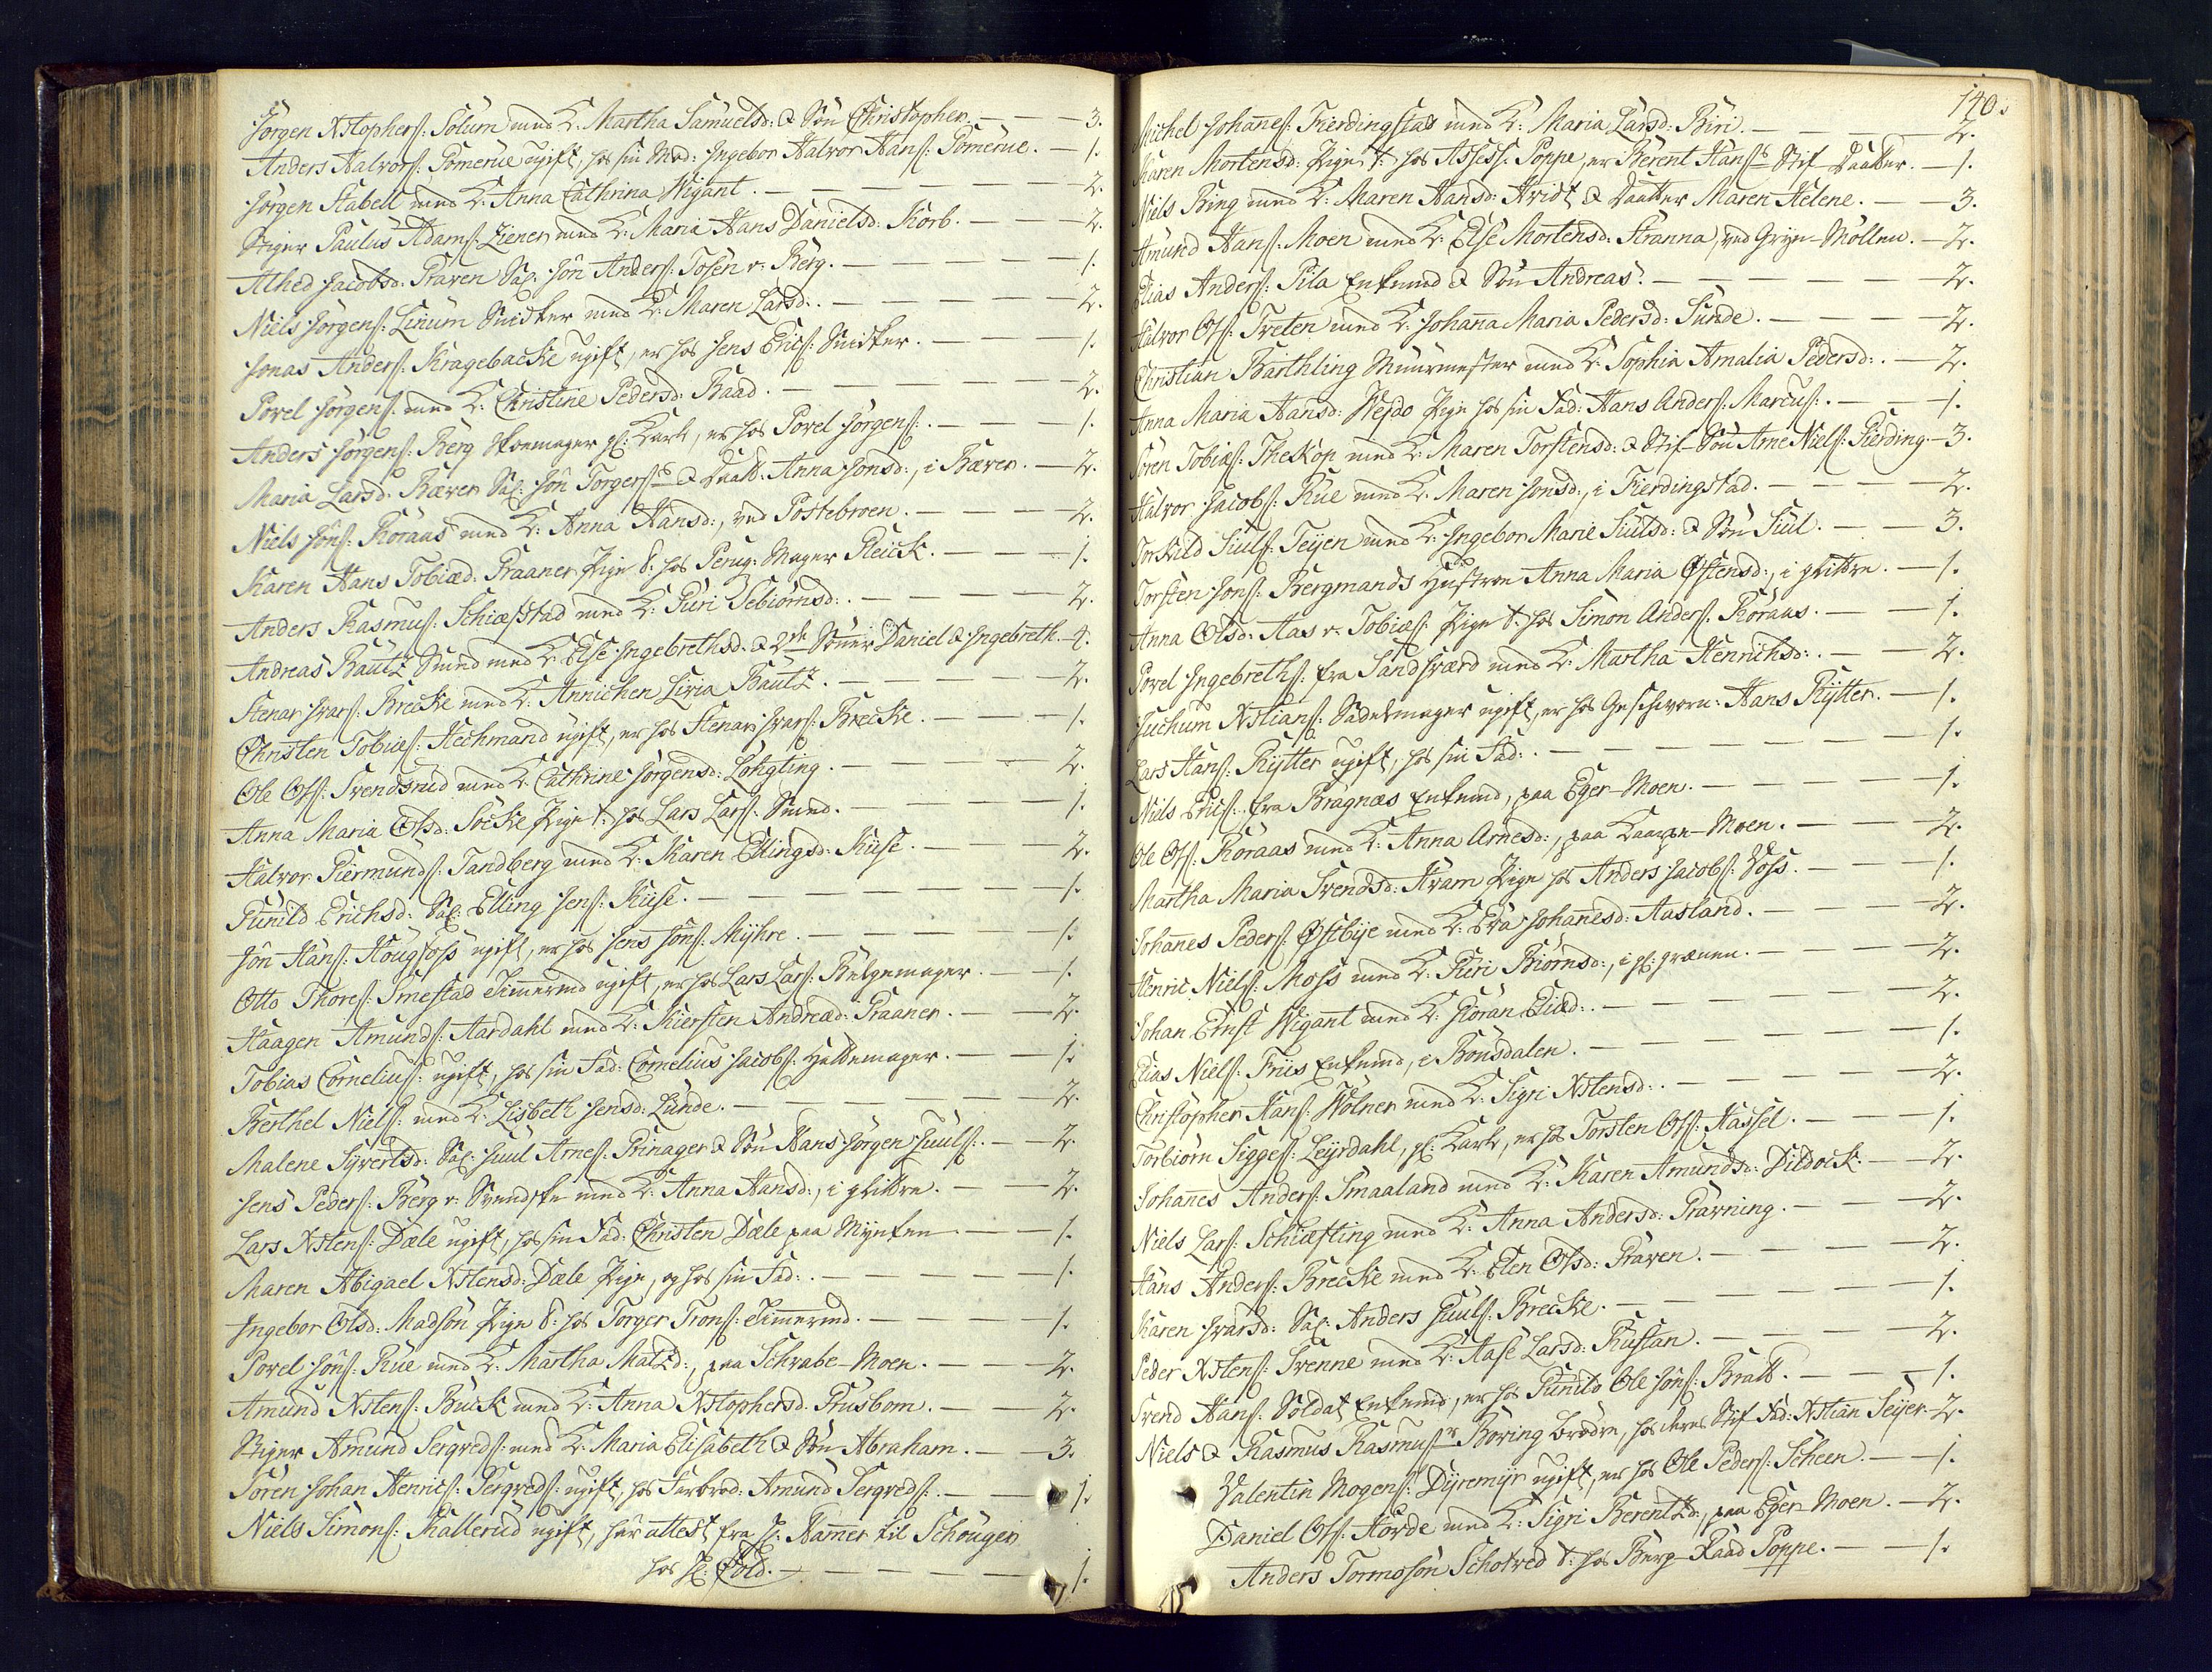 Jörgen Xstophers: Solum med K: Martha Samuelsd: & Sön Christopher. — — 3.
Anders Halvors: Pomerue ugift, hos sin Mod: Ingebor Halvor Hans: Pomerue. — 1.
Jörgen Stabell med K: Anna Cathrina Wigant. — — — — — 2.
Stiger Paulus Adams: Ziener med K: Maria Hans Danielsd: Korb. — — 2.
Alhed Jacobsd: Praven Sal: Jön Anders: Tosen v: Berg. — — — — 1.
Niels Jörgens: Linum Snidker med K: Maren Larsd:. — — — — 2.
Jonas Anders: Kragebacke ugift, er hos Jens Erics: Snidker. — — — 1.
Povel Jörgens: med K: Christine Pedersd: Baad. — — — — — 2.
Anders Jörgens: Berg Skoemager gl: Karl, er hos Povel Jörgens:. — — — 1.
Maria Larsd: Bæver Sal: Jön Torgers: & Daatt: Anna Jonsd:, i Bæver. — 2.
Niels Jöns: Koraas med K: Anna Hansd:, ved Postebroen. — — — — 2.
Karen Hans Tobiæd: Praaner Pige t: hos Peruq: Mager Pleick. — — — 1.
Anders Rasmus: Schiæfstad med K: Guri Sebiörnsd:. — — — — 2.
Andreas Bautz Smed med K: Else Ingebrethsd: & 2de Sönner Daniel & Ingebreth. — 4.
Stenar Ivars: Brecke med K: Annichen Livia Bautz. — — — — 2.
Christen Tobiæs: Hechmand ugift, er hos Stenar Ivars: Brecke. — — — 1.
Ole Ols: Svendsrud med K: Cathrine Jörgensd: Löhgting. — — — — 2.
Anna Maria Olsd: Söcke Pige t: hos Lars Lars: Smed. — — — — 1.
Halvor Giermunds: Tandberg med K: Karen Ellingsd: Kuse. — — — 2.
Gunild Erichsd: Sal: Elling Jens: Kuse. — — — — — — 1.
Jön Hans: Hougfoss ugift, er hos Jens Jöns: Myhre. — — — — 1.
Otto Thores: Smestad Timermd ugift, er hos Lars Lars: Belgemager. — — 1.
Haagen Amunds: Aardahl med K: Kiersten Andreæd: Praaner. — — — 2.
Tobias Cornelius: ugift, hos sin Fad: Cornelius Jacobs: Hattemager. — — 1.
Berthel Niels: med K: Lisbeth Jensd: Lunde. — — — — — 2.
Malene Syvertsd: Sal: Juul Arnes: Prinager & Sön Hans Jörgen Juuls:. — 2.
Jens Peders: Berg v: Svendske med K: Anna Hansd:, i glittre. — — 2.
Lars Xstens: Dæle ugift, hos sin Fad: Christen Dæle paa Mynten — — 1.
Maren Abigael Xstensd: Dæle Pige, og hos sin Fad:. — — — — 1.
Ingebor Olsd: Madsön Pige t: hos Torger Trons: Timermd. — — — 1.
Povel Jöns: Rue med K: Martha Matzd:, paa Schrabe-Moen. — — — 2.
Amund Xstens: Buck med K: Anna Xstophersd: Rusbom. — — — 2.
Stiger Amund Sergveds: med K: Maria Elisabeth & Sön Abraham. — — 3.
Sören Johan Henrics: Sergveds: ugift, hos Farbrod: Amund Sergveds:. — — 1.
Niels Simons: Kallerud ugift, har attest fra H: Hamer til Schouger
hos H: Told. — — — — — 1.
140.
Michel Johanes: Fierdingstad med K: Maria Larsd: Biri. — — — — 2.
Karen Mortensd: Pige t: hos Assess: Poppe, er Berent Hans: Stif-Daatter. — 1.
Niels Ring med K: Maren Hansd: Hvidt & Daatter Maren Helene. — — 3.
Amund Hans: Moen med K: Else Mortensd: Stranna, ved Gryn-Möllen. — 2.
Elias Anders: Pila Enkemd & Sön Andreas. — — — — — 2.
Halvor Ols: Treten med K: Johana Maria Pedersd: Sunde. — — — 2.
Christian Barthling Muurmester med K: Sophia Amalia Pedersd:. — 2.
Anna Maria Hansd: Wejdo Pige hos sin Fad: Hans Anders: Marcus:. — — 1.
Sören Tobiæs: Theskop med K: Maren Torstensd: & Stif-Sön Arne Niels: Gierding. — 3.
Halvor Jacobs: Rue med K: Maren Jonsd:, i Fierdingstad. — — — 2.
Torkild Siuls: Teijen med K: Ingebor Marie Siulsd: & Sön Siul. — — 3.
Torsten Jons: Bergmands Hustroe Anna Maria Østensd:, i glittre. — 1.
Anna Olsd: Aas v: Tobiæs: Pige t: hos Simon Anders: Koraas. — — 1.
Povel Ingebreths: fra Sandsværd med K: Martha Henrichsd:. — — 2.
Juchum Xstians: Sadelmager ugift, er hos Geschworn: Hans Rytter. — 1.
Lars Hans: Rytter ugift, hos sin Fad:. — — — — — — 1.
Niels Erics: fra Bragnæs Enkemd, paa Eger-Moen. — — — — 1.
Ole Ols: Koraas med K: Anna Arnesd:, paa Kaarpe-Moen. — — — 2.
Martha Maria Svendsd: Hvam Pige hos Anders Jacobs: Voss. — — 1.
Johanes Peders: Østbije med K: Eva Johanesd: Aasland. — — — 2.
Henric Niels: Moss med K: Guri Biörnsd:, i gl: grænen. — — — 2.
Johan Ernst Wigant med K: Giöran Eliæd:. — — — — — 2.
Elias Niels: Friis Enkemd, i Bonsdalen. — — — — — 1.
Christopher Hans: Wölner med K: Sigri Xstensd:. — — — — 2.
Torbiörn Sigges: Leyrdahl, gl: Karl, er hos Torsten Ols: Hassel. — — 1.
Johanes Anders: Smaaland med K: Karen Amundsd: Dildock. — — 2.
Niels Lars: Schiæfting med K: Anna Andersd: Pravning. — — — 2.
Hans Anders: Brecke med K: Elen Olsd: Praven. — — — — 2.
Karen Ivarsd: Sal: Anders Juuls: Brecke. — — — — — 1.
Peder Xstens: Svenne med K: Aase Larsd: Rustan. — — — — 2.
Svend Hans: Soldat Enkemd, er hos Gunild Ole Jöns: Bratt. — — — 1.
Niels & Rasmus Rasmus: Boring brödre, hos deres Stif-Fad: Xstian Seijer. — 2.
Valentin Mogens: Dyremyr ugift, er hos Ole Peders: Scheen. — — 1.
Daniel Ols: Hörde med K: Sigri Berentzd:, paa Eger-Moen. — 2.
Anders Tormosön Schotved t: hos Berg-Raad Poppe. — — 1.